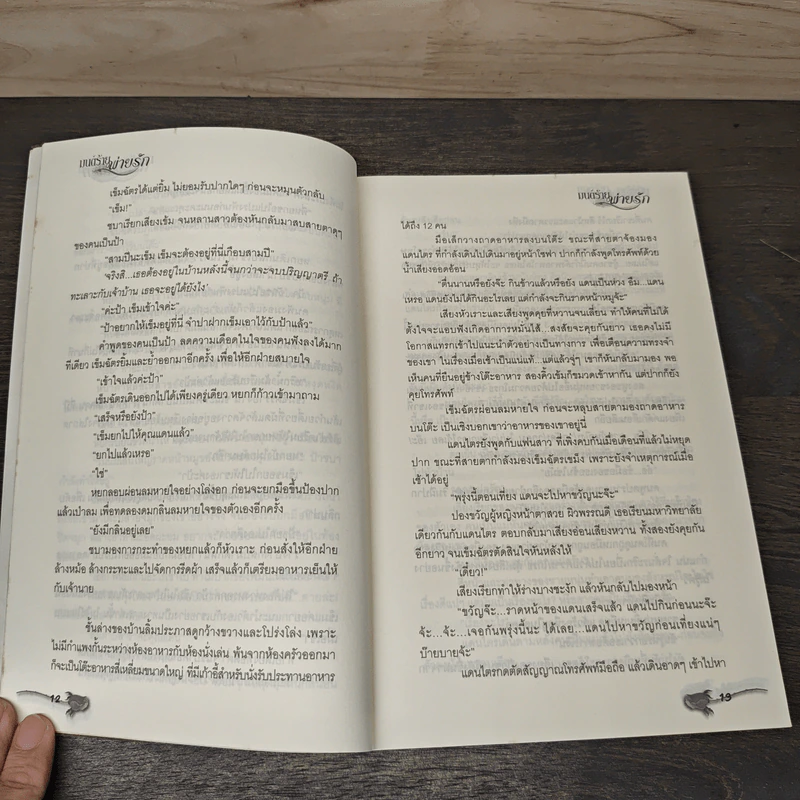 มนต์ร้ายพ่ายรัก
เข็มฉัตรได้แต่ยิ้ม ไม่ยอมรับปากใดๆ ก่อนจะหมุนตัวกลับ
“เข็ม!”
ชบาเรียกเสียงเข้ม จนหลานสาวต้องหันกลับมาสบสายตาดุๆ
ของคนเป็นป้า
“สามปีนะเข็ม เข็มจะต้องอยู่ที่นี่เกือบสามปี”
‘จริงสิ...เธอต้องอยู่ในบ้านหลังนี้จนกว่าจะจบปริญญาตรี ถ้า
ทะเลาะกับเจ้าบ้าน เธอจะอยู่ได้ยังไง’
“ค่ะป้า เข็มเข้าใจค่ะ”
“ป้าอยากให้เข็มอยู่ที่นี่ จำปาฝากเข็มเอาไว้กับป้าแล้ว”
คำพูดของคนเป็นป้า ลดความเดือดในใจของคนฟังลงได้มาก
ทีเดียว เข็มฉัตรยิ้มและย้ำออกมาอีกครั้ง เพื่อให้อีกฝ่ายสบายใจ
“เข้าใจแล้วค่ะป้า”
เข็มฉัตรเดินออกไปได้เพียงครู่เดียว หยกก็ก้าวเข้ามาถาม
“เสร็จหรือยังป้า”
“เข็มยกไปให้คุณแดนแล้ว”
“ยกไปแล้วเหรอ”
“ใช่”
หยกลอบผ่อนลมหายใจอย่างโล่งอก ก่อนจะยกมือขึ้นป้องปาก
แล้วเป่าลม เพื่อทดลองดมกลิ่นลมหายใจของตัวเองอีกครั้ง
“ยังมีกลิ่นอยู่เลย”
ชบามองการกระทำของหยกแล้วก็หัวเราะ ก่อนสั่งให้อีกฝ่าย
ล้างหม้อ ล้างกระทะและไปจัดการรีดผ้า เสร็จแล้วก็เตรียมอาหารเย็นให้
กับเจ้านาย
ชั้นล่างของบ้านลิ้มประภาสดูกว้างขวางและโปร่งโล่ง เพราะ
ไม่มีกำแพงกั้นระหว่างห้องอาหารกับห้องนั่งเล่น พ้นจากห้องครัวออกมา
ก็จะเป็นโต๊ะอาหารสี่เหลี่ยมขนาดใหญ่ ที่มีเก้าอี้สำหรับนั่งรับประทานอาหาร
12
มนต์ร้ายพ่ายรัก
ได้ถึง 12 คน
มือเล็กวางถาดอาหารลงบนโต๊ะ ขณะที่สายตาจ้องมอง
แดนไตร ที่กำลังเดินไปเดินมาอยู่หน้าโซฟา ปากก็กำลังพูดโทรศัพท์ด้วย
น้ำเสียงออดอ้อน
“ตื่นนานหรือยังจ๊ะ กินข้าวแล้วหรือยัง แดนเป็นห่วง อืม...แดน
เหรอ แดนยังไม่ได้กินอะไรเลย แต่กำลังจะกินราดหน้าหมูจ้ะ”
เสียงหัวเราะและเสียงพูดคุยที่หวานจนเลี่ยน ทำให้คนที่ไม่ได้
ตั้งใจจะแอบฟังเกิดอาการหมั่นไส้. ..สงสัยจะคุยกันยาว เธอคงไม่มี
โอกาสแทรกเข้าไปแนะนำตัวอย่างเป็นทางการ เพื่อเตือนความทรงจำ
ของเขา ในเรื่องเมื่อเช้าเป็นแน่แท้...แต่แล้วจู่ๆ เขาก็หันกลับมามอง พอ
เห็นคนที่ยืนอยู่ข้างโต๊ะอาหาร สองคิ้วเข้มก็ขมวดเข้าหากัน แต่ปากก็ยัง
คุยโทรศัพท์
เข็มฉัตรผ่อนลมหายใจ ก่อนจะหลุบสายตามองถาดอาหาร
บนโต๊ะ เป็นเชิงบอกเขาว่าอาหารของเขาอยู่นี่
แดนไตรยังพูดกับแฟนสาว ที่เพิ่งคบกันเมื่อเดือนที่แล้วไม่หยุด
ปาก ขณะที่สายตากำลังมองเข็มฉัตรเขม็ง เพราะยังจำเหตุการณ์เมื่อ
เช้าได้อยู่
“พรุ่งนี้ตอนเที่ยง แดนจะไปหาขวัญนะจ๊ะ”
ปองขวัญผู้หญิงหน้าตาสวย ผิวพรรณดี เธอเรียนมหาวิทยาลัย
เดียวกันกับแดนไตร ตอบกลับมาเสียงอ่อนเสียงหวาน ทั้งสองยังคุยกัน
อีกยาว จนเข็มฉัตรตัดสินใจหันหลังให้
“เดี๋ยว!”
เสียงเรียกทำให้ร่างบางชะงัก แล้วหันกลับไปมองหน้า
“ขวัญจ๊ะ...ราดหน้าของแดนเสร็จแล้ว แดนไปกินก่อนนะจ๊ะ
จ้ะ...จ้ะ...เจอกันพรุ่งนี้นะ ได้เลย...แดนไปหาขวัญก่อนเที่ยงแน่ๆ
บ๊ายบายจ้ะ”
แดนไตรกดตัดสัญญาณโทรศัพท์มือถือ แล้วเดินอาดๆ เข้าไปหา
13